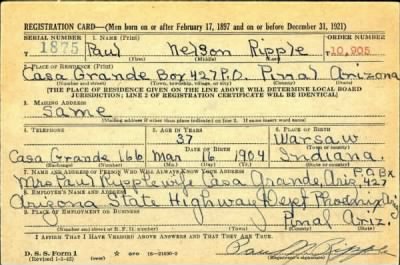 REGISTRATION CARD—(Men born on or after February 17, 1897 and on or before December 31, 1921)
SERIAL NUMBER 1. NAME (Print) ORDER NUMBER
1875 Paul Nelson Ripple 10,905
(First) (Middle) (Last)
2. PLACE OF RESIDENCE (Print)
Casa Grande Box 427 P.O. Pinal Arizona
(Number and street) (Town, township, village, or city) (County) (State)
[THE PLACE OF RESIDENCE GIVEN ON THE LINE ABOVE WILL DETERMINE LOCAL BOARD
JURISDICTION; LINE 2 OF REGISTRATION CERTIFICATE WILL BE IDENTICAL]
3. MAILING ADDRESS
Same
(Mailing address if other than place indicated on line 2. If same insert word same)
4. TELEPHONE 5. AGE IN YEARS 6. PLACE OF BIRTH
37 Warsaw
DATE OF BIRTH (Town or county)
Casa Grande 166 Mar 16 1904 Indiana.
(Exchange) (Number) (Mo.) (Day) (Yr.) (State or country)
7. NAME AND ADDRESS OF PERSON WHO WILL ALWAYS KNOW YOUR ADDRESS P.O. Box
Mrs Paul Ripple wife Casa Grande, Ariz, 427
8. EMPLOYER'S NAME AND ADDRESS
Arizona State Highway Dept Phoenix, Ariz
9. PLACE OF EMPLOYMENT OR BUSINESS
Pinal Ariz.
(Number and street or R. F. D. number) (Town) (County) (State)
I AFFIRM THAT I HAVE VERIFIED ABOVE ANSWERS AND THAT THEY ARE TRUE.
D. S. S. Form 1 16—21630-2 Paul N. Ripple
(Revised 1-1-42) (over)